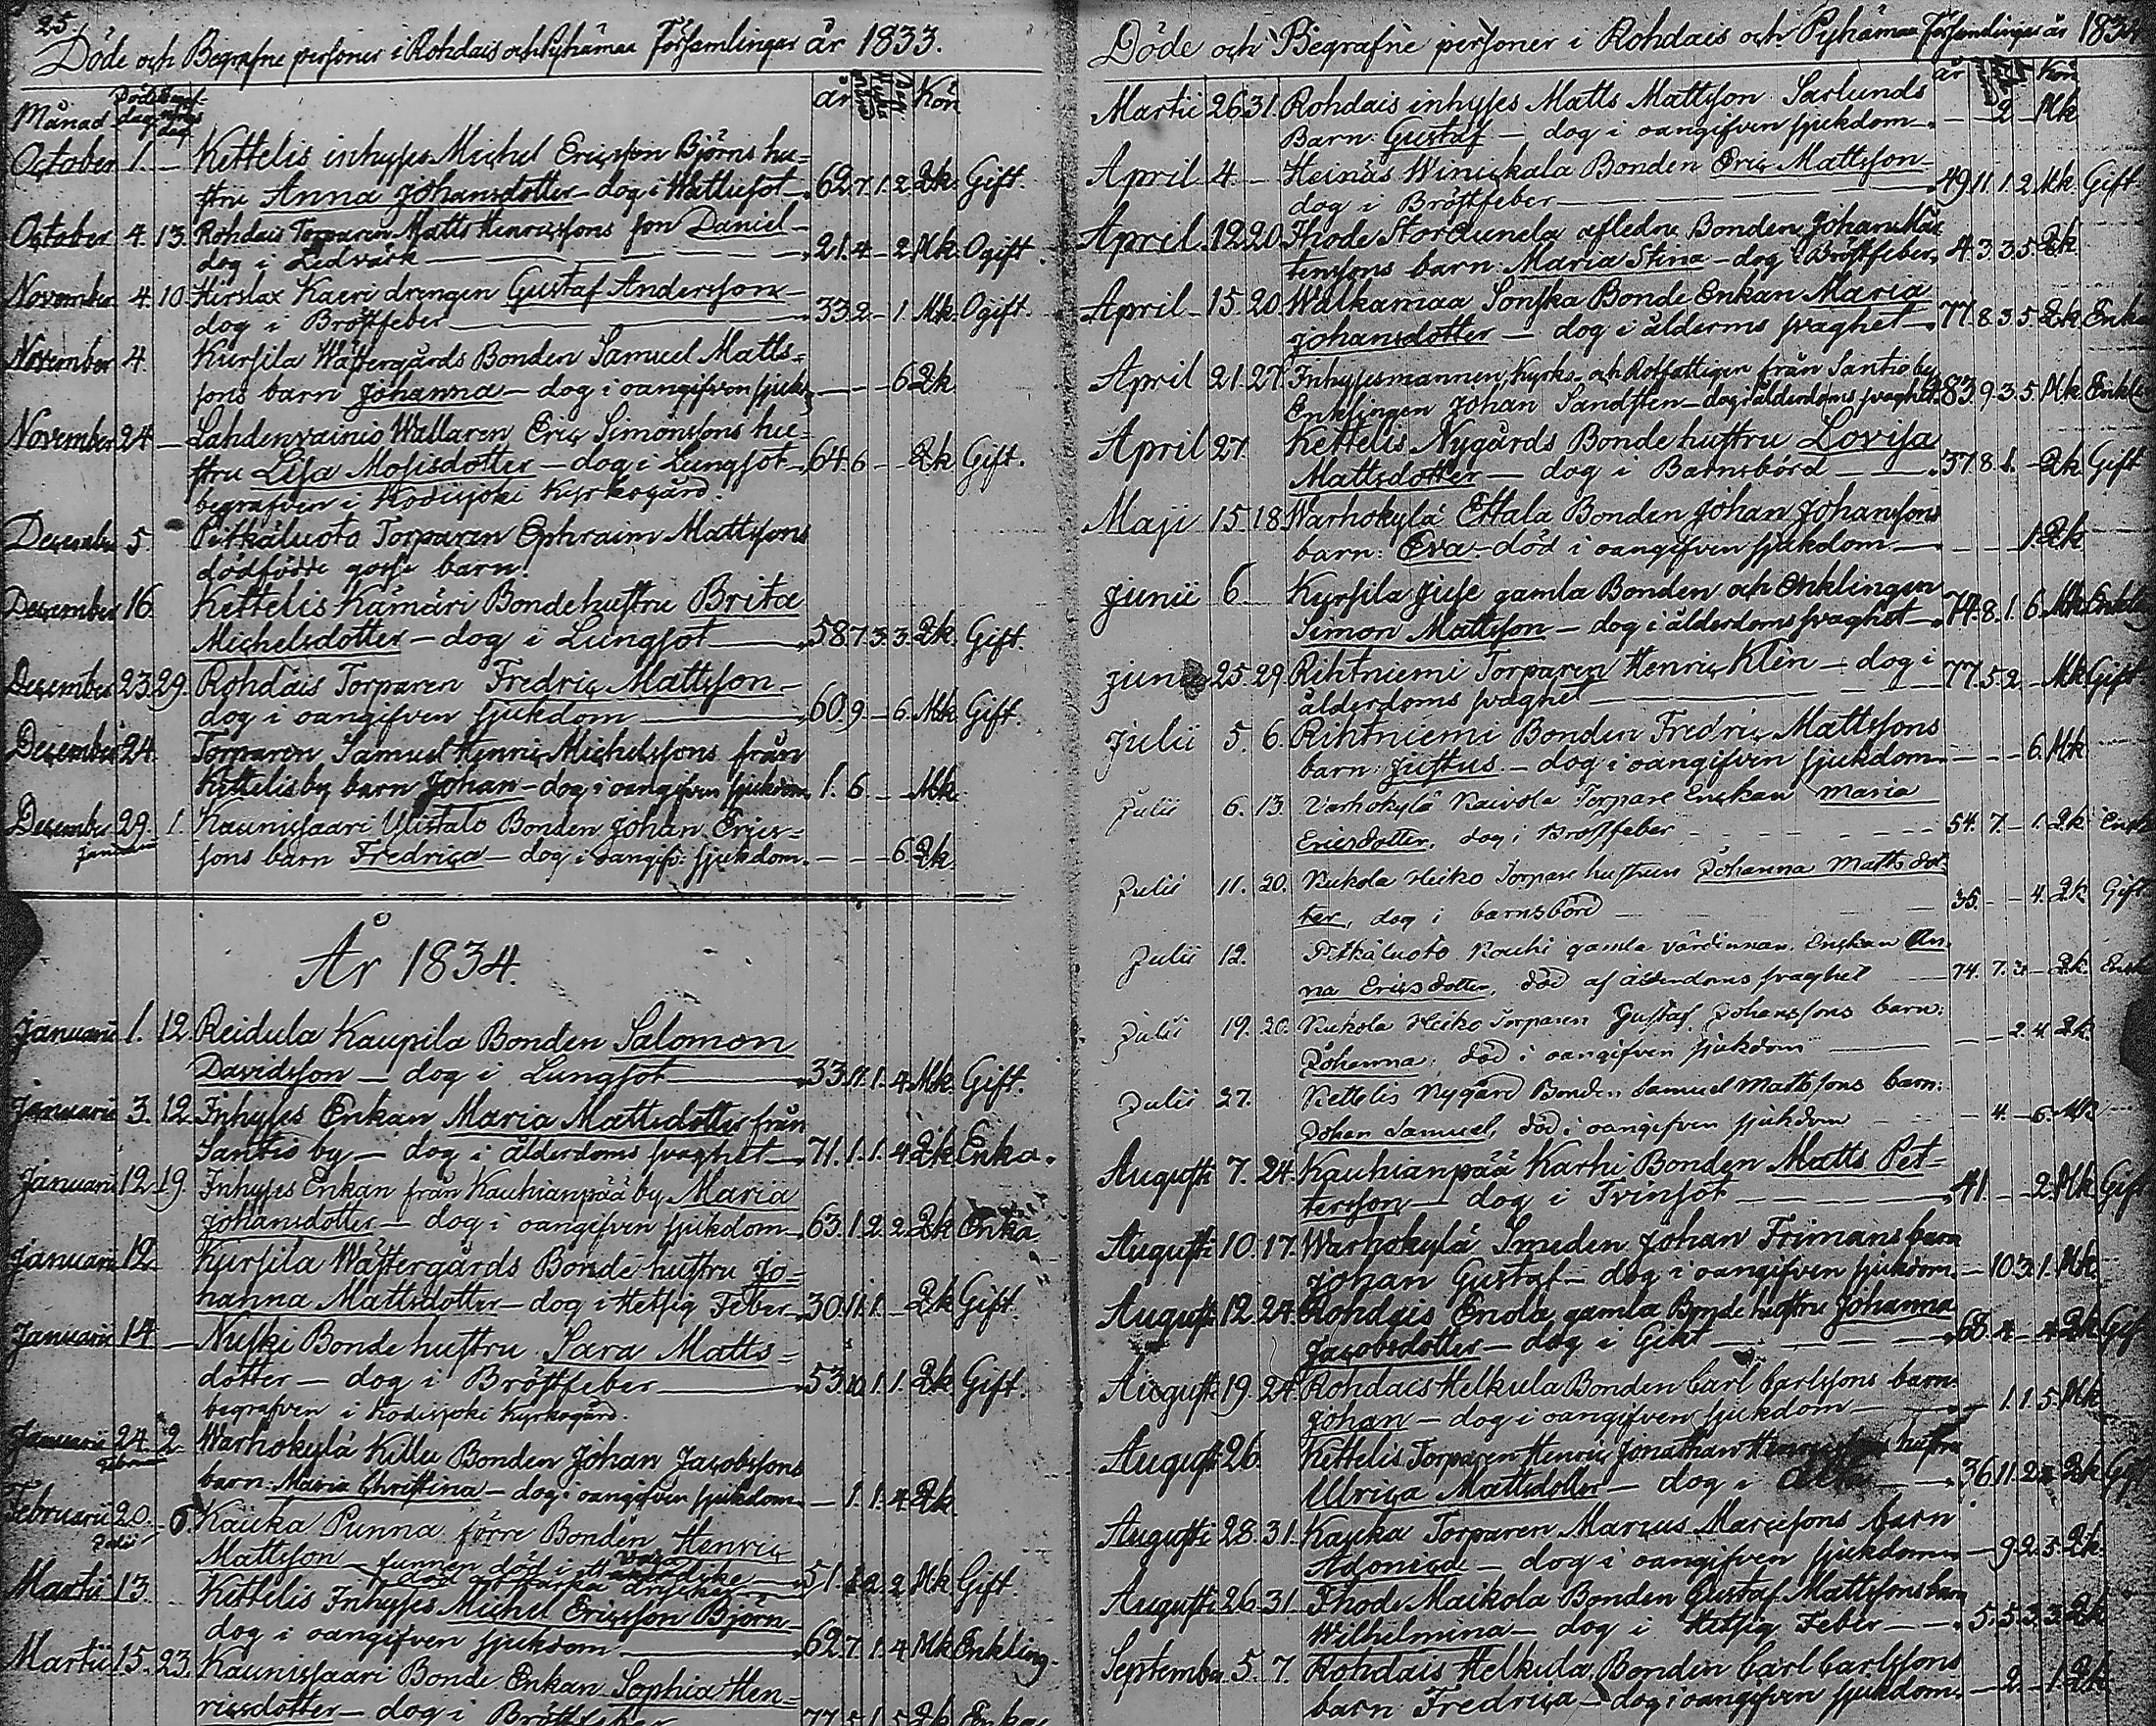 25.
Döde och Begrafne personer i Rohdais och Pyhämaa Församlingar år 1833.
Månad Döde dag Begrafnings dag år månad Dagar Kön
October 1. — Kettelis inhyses Michel Ericsson Björns hu=
stru Anna Johansdotter — dog i Wattusot — 62. 7. 1. 2. Qk. Gift.
October 4. 13. Rohdais Torparen Matts Henricssons son Daniel —
dog i Ledvärk — 21. 4 — 2. Mk. Ogift.
November 4. 10. Hirslax Kaeri drengen Gustaf Andersson —
dog i Bröstfeber — 33. 2 — 1. Mk. Ogift.
November 4. Kursila Wästergårds Bonden Samuel Matts=
sons barn Johanna — dog i oangifven sjukd — — 6. Qk
November 24 — Lahdenvainio Wallaren Eric Simonssons hu=
stru Lisa Mosisdotter — dog i Lungsot — 64. 6 — — Qk Gift.
begrafven i Hodisjoki Kyrkogård.
December 5. Pitkäluoto Torparen Ephraim Mattssons
dödfödde gosse barn.
December 16. Kettelis Kämäri Bondehustru Brita
Michelsdotter — dog i Lungsot — 58. 7. 3. 3. Qk. Gift.
December 23. 29. Rohdais Torparen Fredric Mattsson —
dog i oangifven sjukdom — 60. 9. — 6. Mk. Gift.
December 24. Torparen Samuel Henric Michelssons från
Kettelisby barn Johan — dog i oangifven sjukdom 1. 6. — — Mk.
December 29. 1. Kaunissaari Ylistalo Bonden Johan Erics=
januari sons barn Fredrica — dog i oangif: sjukdom. — — — 6. Qk
År 1834.
Januarii 1. 12. Reidula Kaupila Bonden Salomon
Davidsson — dog i Lungsot — 33. 11. 1. 4. Mk. Gift.
Januarii 3. 12. Inhyses Enkan Maria Mattsdotter från
Santio by — dog i ålderdoms svaghet — 71. 1. 1. 4. Qk Enka.
Januarii 12. 19. Inhyses Enkan från Kauhianpää by Maria
Johansdotter — dog i oangifven sjukdom — 63. 1. 2. 2. Qk Enka.
Januarii 12. Kursila Wästergårds Bonde hustru Jo=
hanna Mattsdotter — dog i Hetsig Feber — 30. 11. 1. — Qk Gift.
Januarii 14. — Nuski Bonde hustru Sara Matts=
dotter — dog i Bröstfeber — 53. 10. 1. 1. Qk Gift.
begrafven i Hodisjoki Kyrkogård.
Januarii 24. 2. Warhokylä Killu Bonden Johan Jacobssons
Februarii barn: Maria Christina — dog i oangifven sjukdom. — 1. 1. 4. Qk
Februarii 20. 6. Kauka Punna förre Bonden Henric
Julii Mattsson — funnen död i dike — 51. 2. 2. Mk Gift.
död starka drycker
Martii 13. Kettelis Inhyses Michel Ericsson Björn —
dog i oangifven sjukdom — 62. 7. 1. 4. Mk Enkling.
Martii 15. 23. Kaunissaari Bonde Enkan Sophia Hen=
ricsdotter — dog i Bröstfeber — 77. 5. 1. 5. Qk Enka
Döde och Begrafne personer i Rohdais och Pyhämaa Församlingar år 1834
år Kön
Martii 26. 31. Rohdais inhyses Matts Mattsson Sarlunds
Barn: Gustaf — dog i oangifven sjukdom — — — 2 — Mk
April 4. — Heinäs Winickala Bonden Eric Mattsson —
dog i Bröstfeber — 49. 11. 1. 2. Mk Gift
April 12. 20. Ihode Stordunela afledne Bonden Johan Mår
tenssons barn: Maria Stina — dog i Bröstfeber, 4. 3. 3. 5. Qk.
April 15. 20. Walkamaa Sonska Bonde Enkan Maria
Johansdotter — dog i ålderms svaghet — 77. 8. 3. 5. Qk Enka
April 21. 27. Inhysesmannen, Kyrko- och Rotfattigen från Santio by
Enklingen Johan Sandsten — dog i ålderdoms svaghet. 83. 9. 3. 5. Mk Enkling
April 27. Kettelis Nygårds Bonde hustru Lovisa
Mattsdotter — dog i Barnsbörd — 37. 8. 1. — Qk Gift
Maji 15. 18. Warhokylä Ettala Bonden Johan Johanssons
barn: Eva — död i oangifven sjukdom — — — — 1. Qk
Junii 6. Kursila Juse gamla Bonden och Enklingen
Simon Mattsson — dog i ålderdoms svaghet — 74. 8. 1. 6. Mk Enkling
Junii 25. 29. Rihtniemi Torparen Henric Klen — dog i
ålderdoms svaghet — 77. 5. 2. — Mk Gift
Julii 5. 6. Rihtniemi Bonden Fredric Mattssons
barn: Justus — dog i oangifven sjukdom — — — — 6. Mk
Julii 6. 13. Varhokylä Raivola Torpare Enckan Maria
Ericsdotter, dog i Bröstfeber — 54. 7. — 1. Qk Enka
Julii 11. 20. Kukola Heiko Torpare hustrun Johanna Mattsdot
ter, dog i barnsbörd — 35. — — 4. Qk Gift
Julii 12. Pitkäluoto Rouhi gamla värdinnan, Enckan An
na Ericsdotter, död af ålderdoms svaghet — 74. 7. 3. — Qk. Enka
Julii 19. 20. Kukola Heiko Torparen Gustaf Johanssons barn:
Johanna, död i oangifven sjukdom — — — 2. 4. Qk.
Julii 27. Kettelis Nygård Bonden Samuel Mattssons barn:
Johan Samuel, död i oangifven sjukdom — 4. — 6. Mk
Augusti 7. 24. Kauhianpää Karhi Bonden Matts Pet=
tersson — dog i Tvinsot — 41. — — 2. Mk Gift
Augusti 10. 17. Warhokylä Smeden Johan Frimans barn
Johan Gustaf — dog i oangifven sjukdom. — 10. 3. 1. Mk.
Augusti 12. 24. Rohdais Enola gamla Bonde hustru Johanna
Jacobsdotter — dog i Gikt — 68. 4. — 4. Qk Gift
Augusti 19. 24. Rohdais Helkula Bonden Carl Carlssons barn:
Johan — dog i oangifven sjukdom — — 1. 1. 5. Mk
Augusti 26. Kettelis Torparen Henric Jonathan hustru
Ulrica Mattsdotter — dog i — 36. 11. 2. Qk Gift
Augusti 28. 31. Kauka Torparen Marcus Marcussons barn
Adonica — dog i oangifven sjukdom — 9. 2. 5. Qk.
Augusti 26. 31. Ihode Maikola Bonden Gustaf Mattssons barn
Wilhelmina — dog i Hetsig Feber — — 5. 5. 3. 3. Qk
September 5. 7. Rohdais Helkula Bonden Carl Carlssons
barn Fredrica — dog i oangifven sjukdom. — 2. — 1. Qk